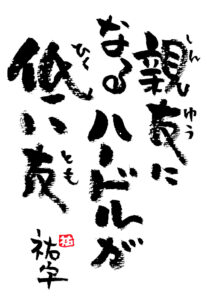 親友に
しんゆう
なるハードルが
低い友
ひく
とも
祐宇
祐